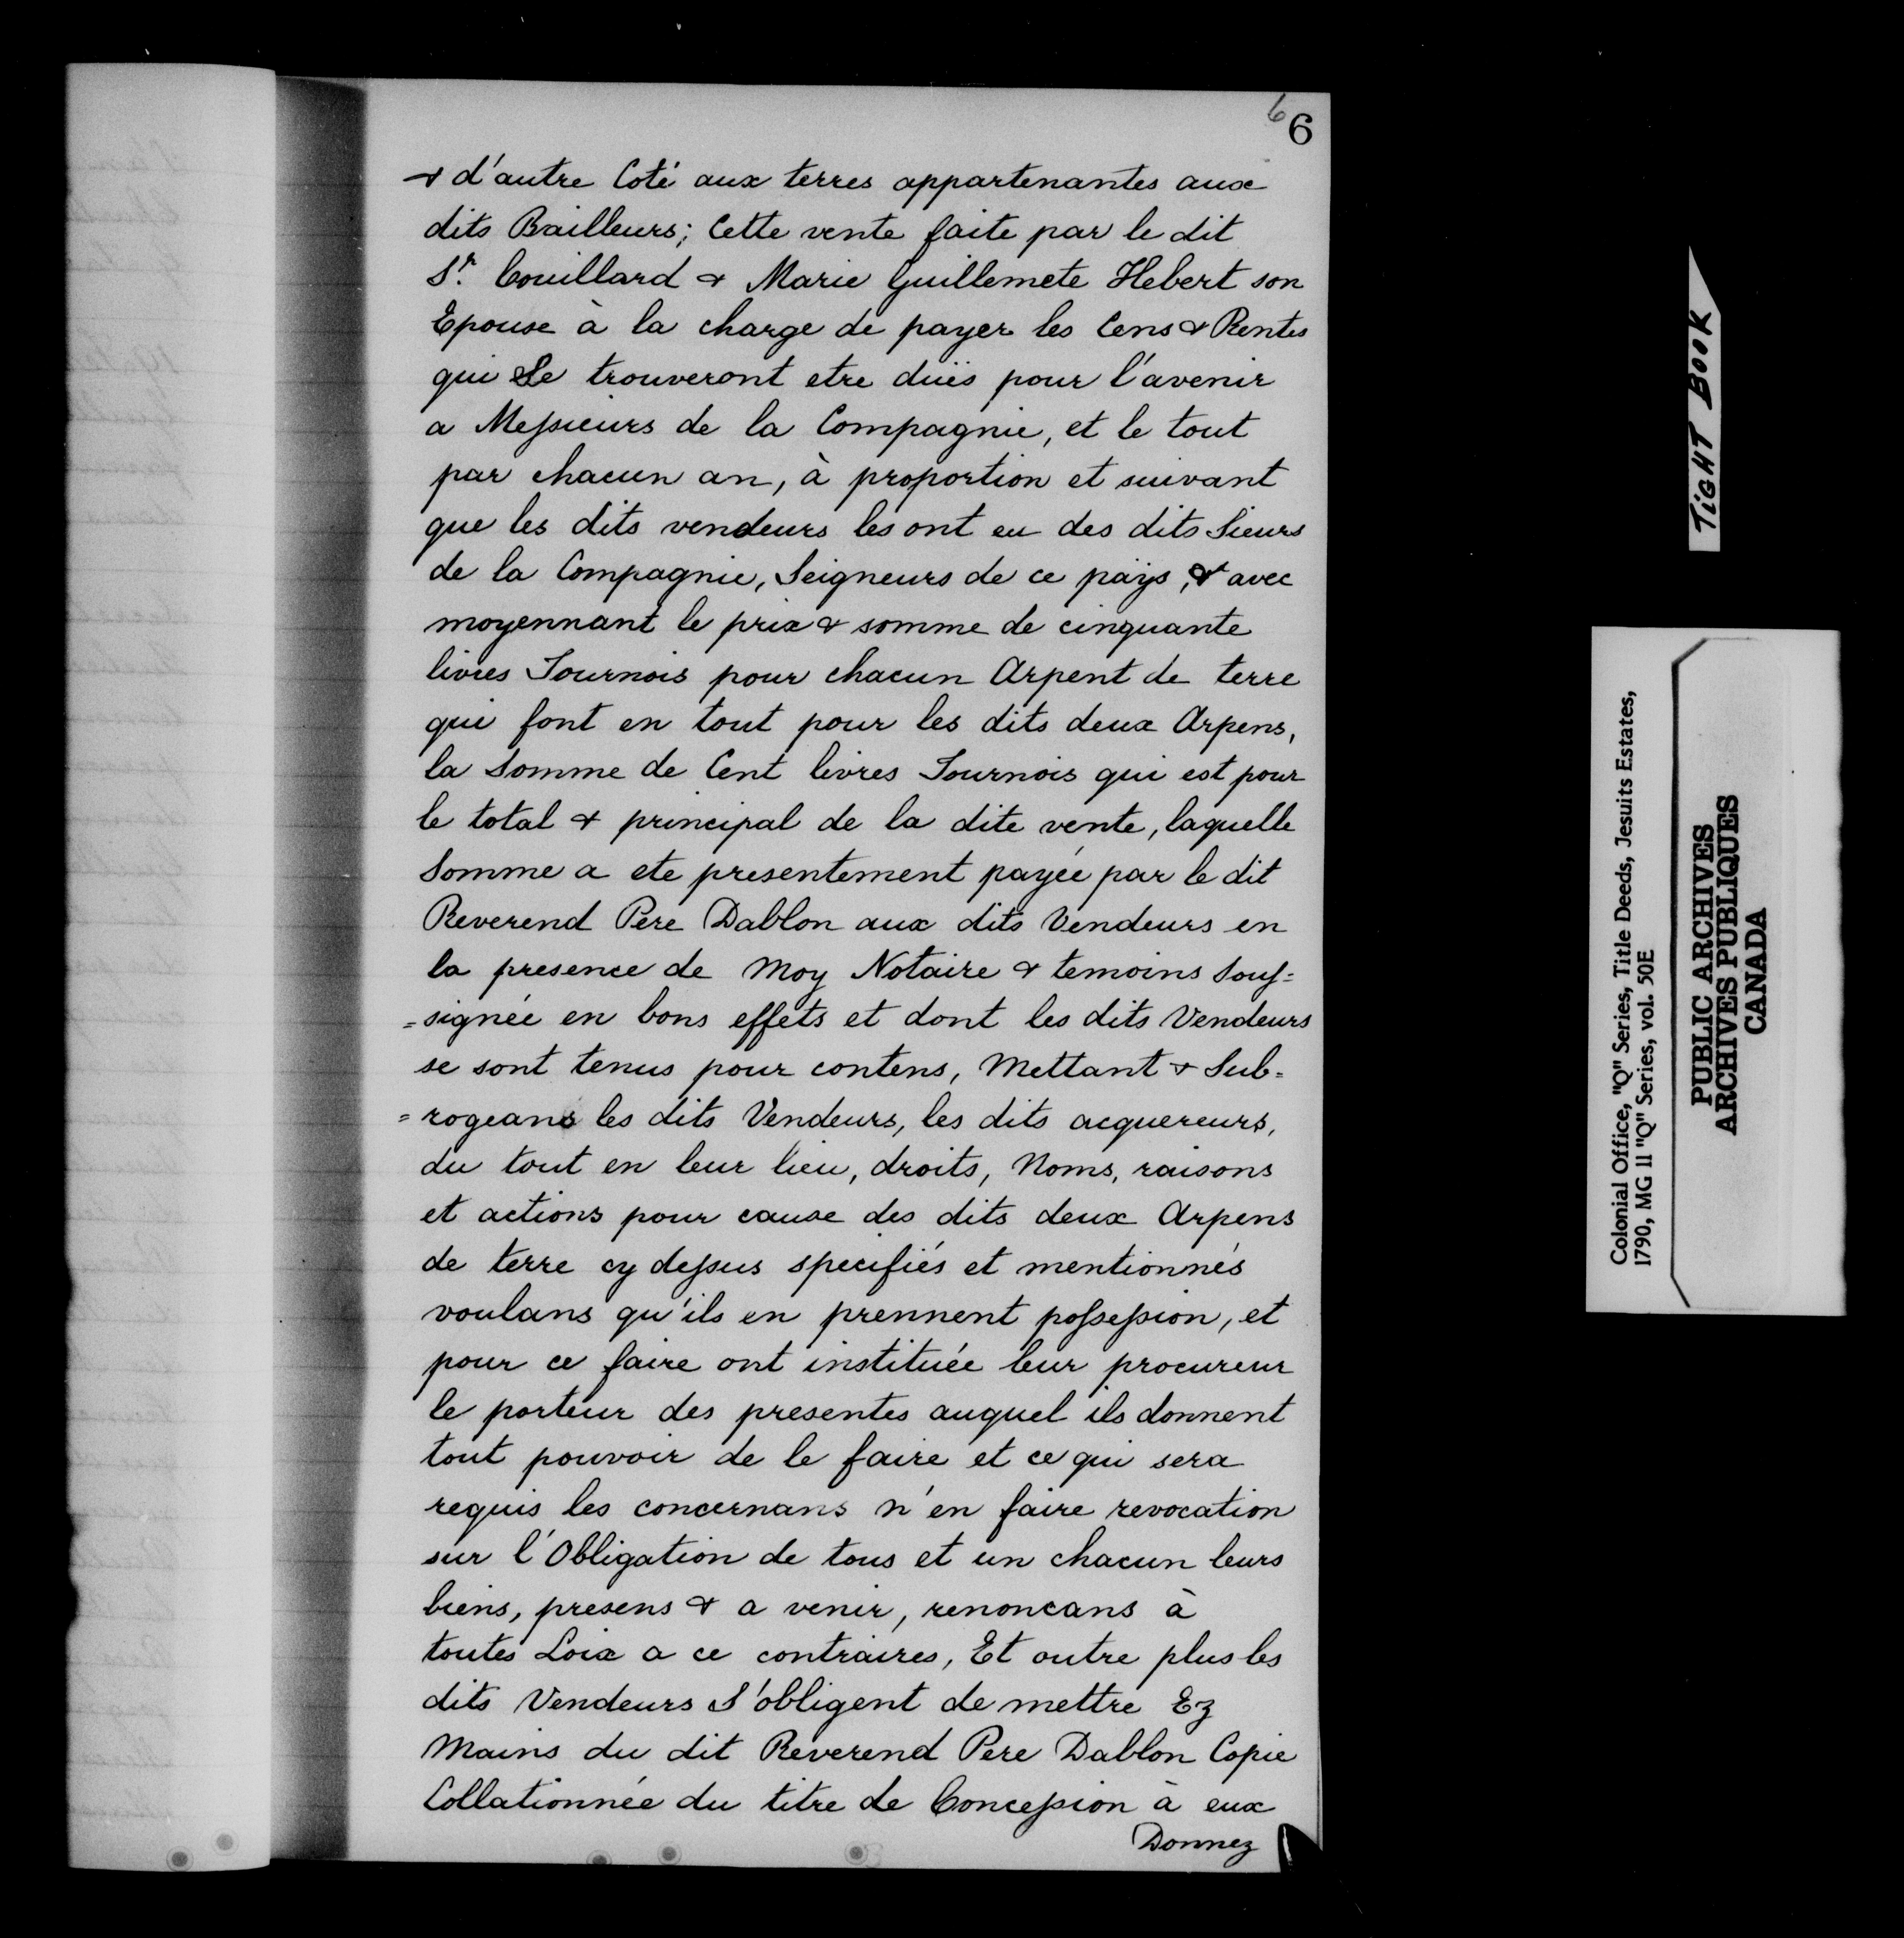 6
6
& d'autre Coté aux terres appartenantes aux
dits Bailleurs; Cette vente faite par le dit
Sr. Couillard & Marie Guillemete Hebert son
Epouse à la charge de payer les Cens & Rentes
qui Se trouveront etre düës pour l'avenir
a Messieurs de la Compagnie, et le tout
par chacun an, à proportion et suivant
que les dits vendeurs les ont eu des dits Sieurs
de la Compagnie, Seigneurs de ce païs, & avec
moyennant le prix & somme de cinquante
livres Tournois pour chacun Arpent de terre
qui font en tout pour les dits deux Arpens,
la Somme de Cent livres Tournois qui est pour
le total & principal de la dite vente, laquelle
Somme a ete presentement payée par le dit
Reverend Pere Dablon aux dits Vendeurs en
la presence de Moy Notaire & temoins Sous=
=signée en bons effets et dont les dits Vendeurs
se sont tenus pour contens, Mettant & Sub=
=rogeans les dits Vendeurs, les dits acquereurs,
du tout en leur lieu, droits, Noms, raisons
et actions pour cause des dits deux Arpens
de terre cy dessus specifiés et mentionnés
voulans qu'ils en prennent possession, et
pour ce faire ont instituée leur procureur
le porteur des presentes auquel ils donnent
tout pouvoir de le faire et ce qui sera
requis les concernans n'en faire revocation
sur l'Obligation de tous et un chacun leurs
biens, presens & a venir, renoncans à
toutes Loix a ce contraires, Et outre plus les
dits Vendeurs S'obligent de mettre Ez
Mains du dit Reverend Pere Dablon Copie
Collationnée du titre de Concession à eux
Donnez
TIGHT BOOK
Colonial Office, "Q" Series, Title Deeds, Jesuits Estates,
1790, MG 11 "Q" Series, vol. 50E
PUBLIC ARCHIVES
ARCHIVES PUBLIQUES
CANADA